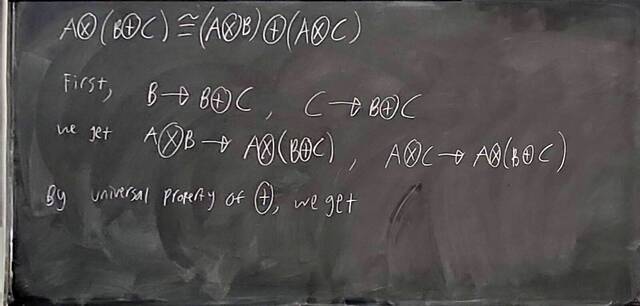 A⊗(B⊕C) ≅ (A⊗B)⊕(A⊗C)
First, B → B⊕C , C → B⊕C
we get A⊗B → A⊗(B⊕C) , A⊗C → A⊗(B⊕C)
By universal property of ⊕, we get